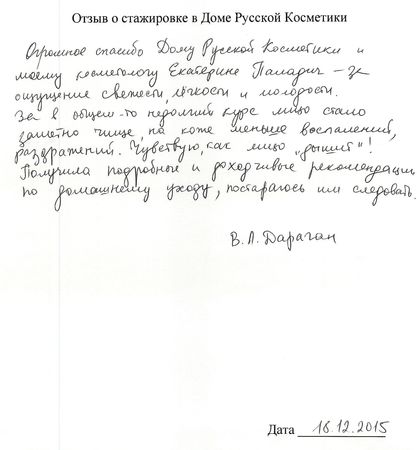 Отзыв о стажировке в Доме Русской Косметики
Огромное спасибо Дому Русской Косметики и
моему косметологу Екатерине Паладич – за
ощущение свежести, лёгкости и молодости.
За в общем-то недолгий курс лицо стало
заметно чище, на коже меньше воспалений,
раздражений. Чувствую, как лицо „дышит"!
Получила подробные и доходчивые рекомендации
по домашнему уходу, постараюсь им следовать.
В.Л. Дараган
Дата 18.12.2015